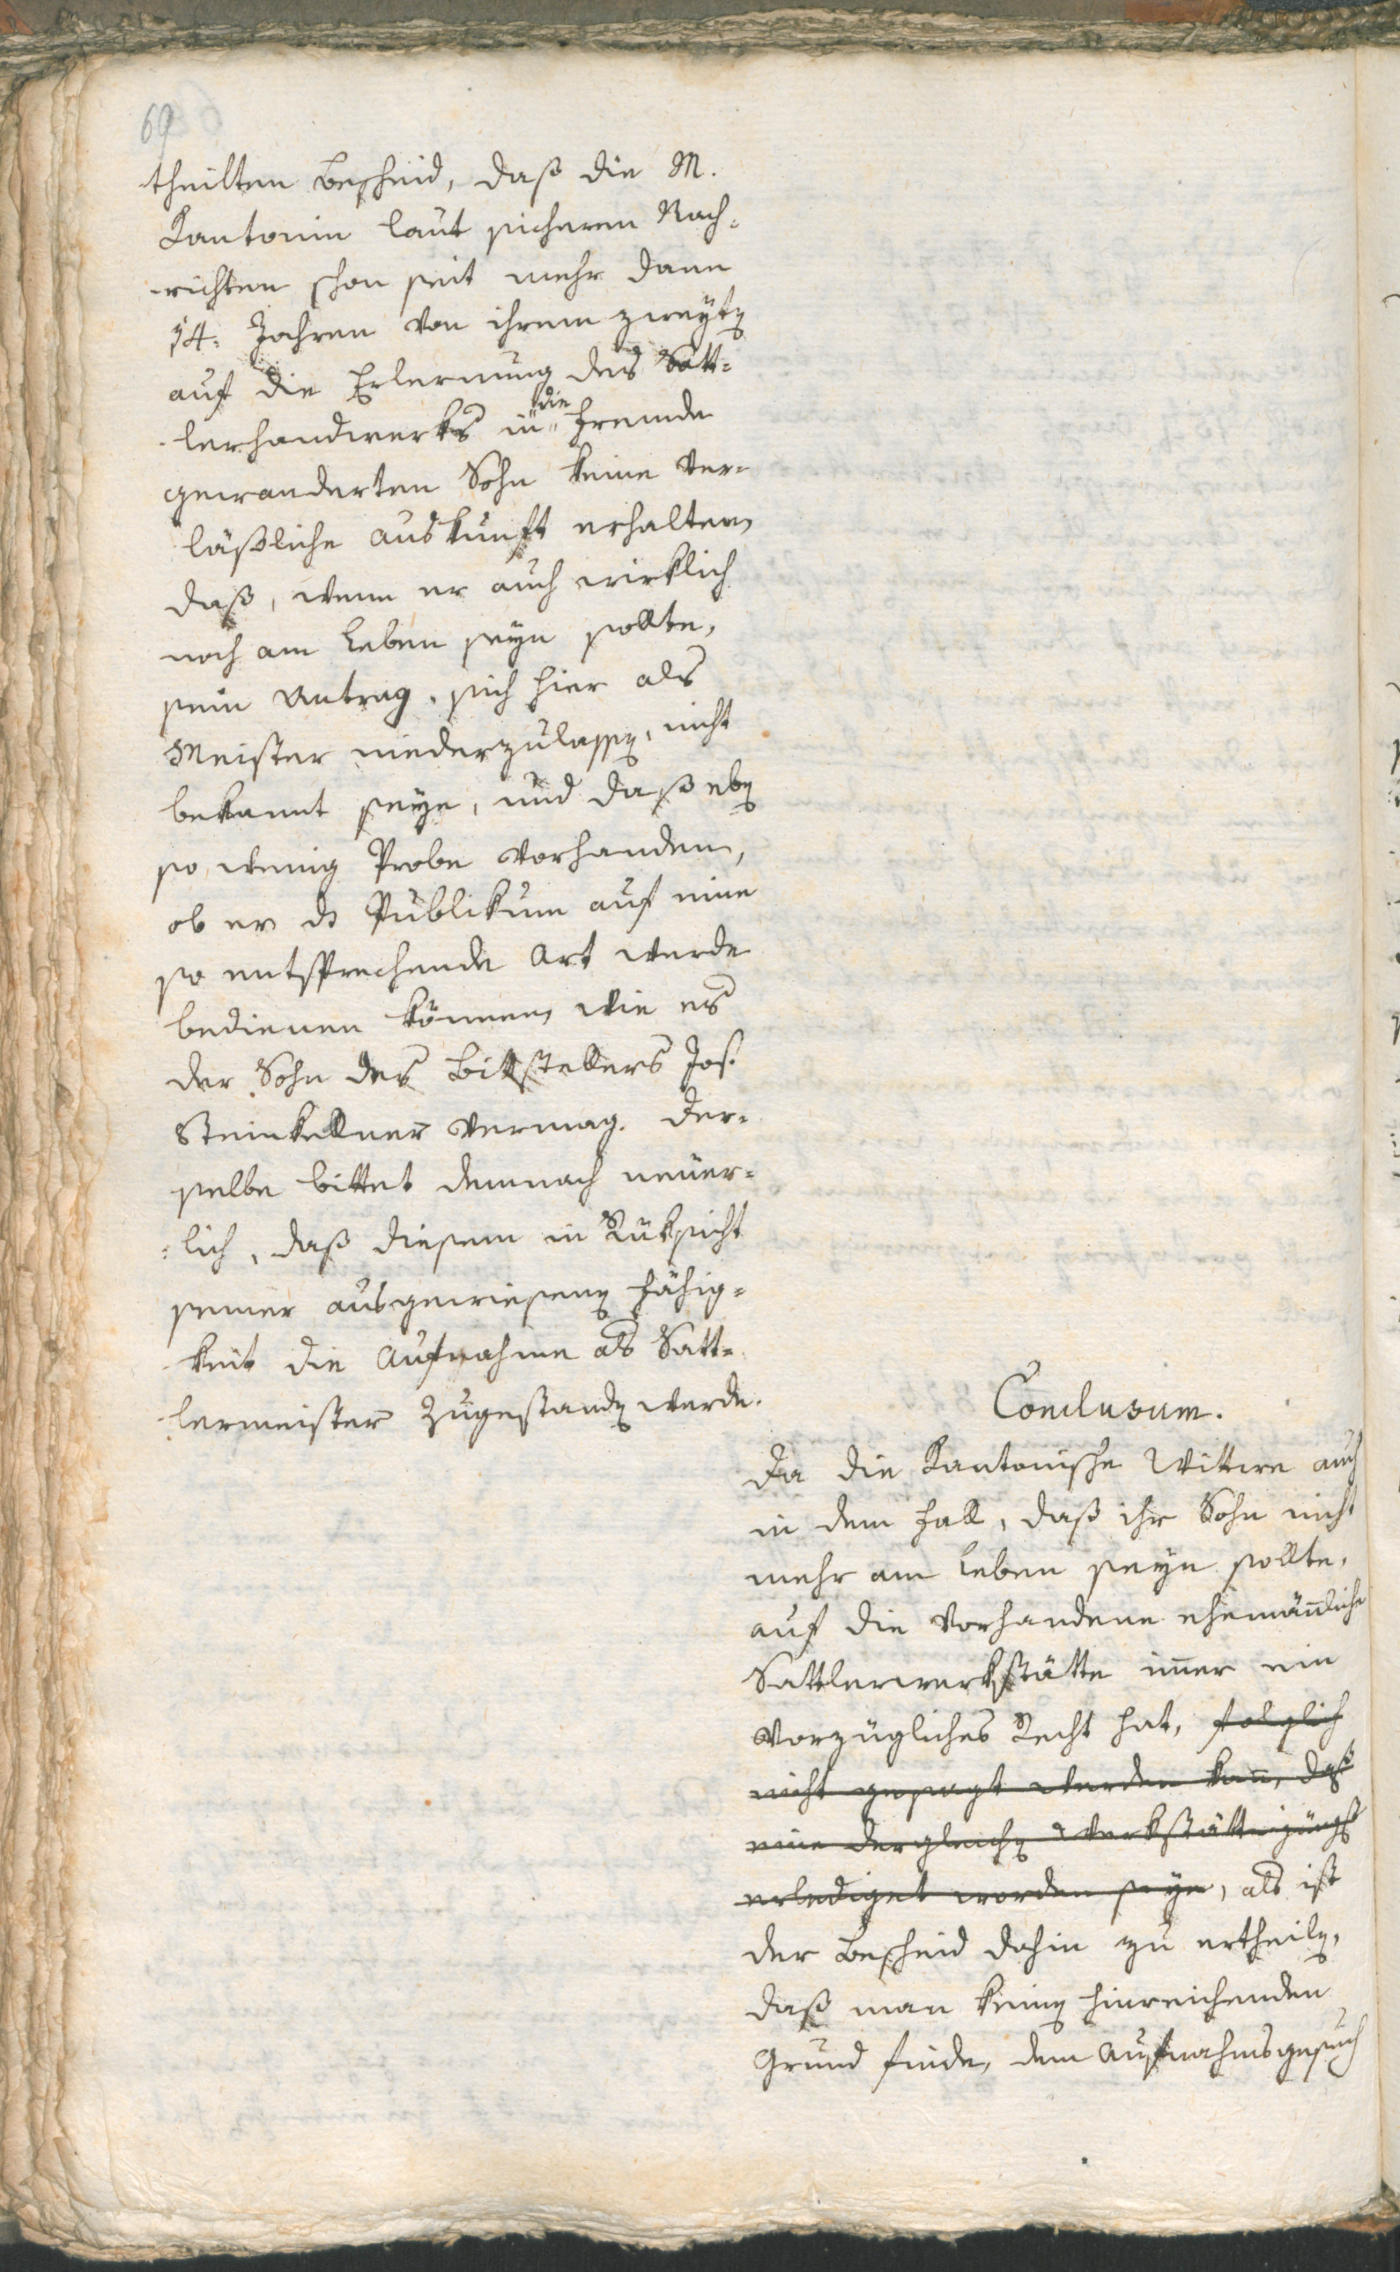 69
theilten Bescheid, daß die M.
Kantonin laut sicheren Nach-
richten schon seit mehr dann
14. Jahren von ihrem zweyten
auf die Erlernung des Satt-
lerhandwerks in die Fremde
gewanderten Sohn keine ver-
läßliche Auskunft erhalten,
daß, wenn er auch wirklich
noch am Leben seyn sollte,
sein Antrag, sich hier als
Meister niederzulassen, nicht
bekannt seye, und daß eben
so wenig Probe vorhanden,
ob er das Publikum auf eine
so entsprechende Art werde
bedienen können, wie es
der Sohn des Bittstellers Jos.
Steinkellner vermag. Der-
selbe bittet demnach neuer-
lich, daß diesem in Rüksicht
seiner ausgewiesenen Fähig-
keit die Aufnahme als Satt-
lermeister zugestanden werde.
Conclusum.
Da die Kantonische Wittwe auch
in dem Fall, daß ihr Sohn nicht
mehr am Leben seyn sollte,
auf die vorhandene ehemännliche
Sattlerwerkstätte immer ein
vorzügliches Recht hat, folglich
nicht gesagt werden kann, daß
eine dergleichen Werkstätte
erlediget worden seye, als ist
der Bescheid dahin zu ertheilen,
daß man keinen hinreichenden
Grund finde, dem Aufnahmsgesuch